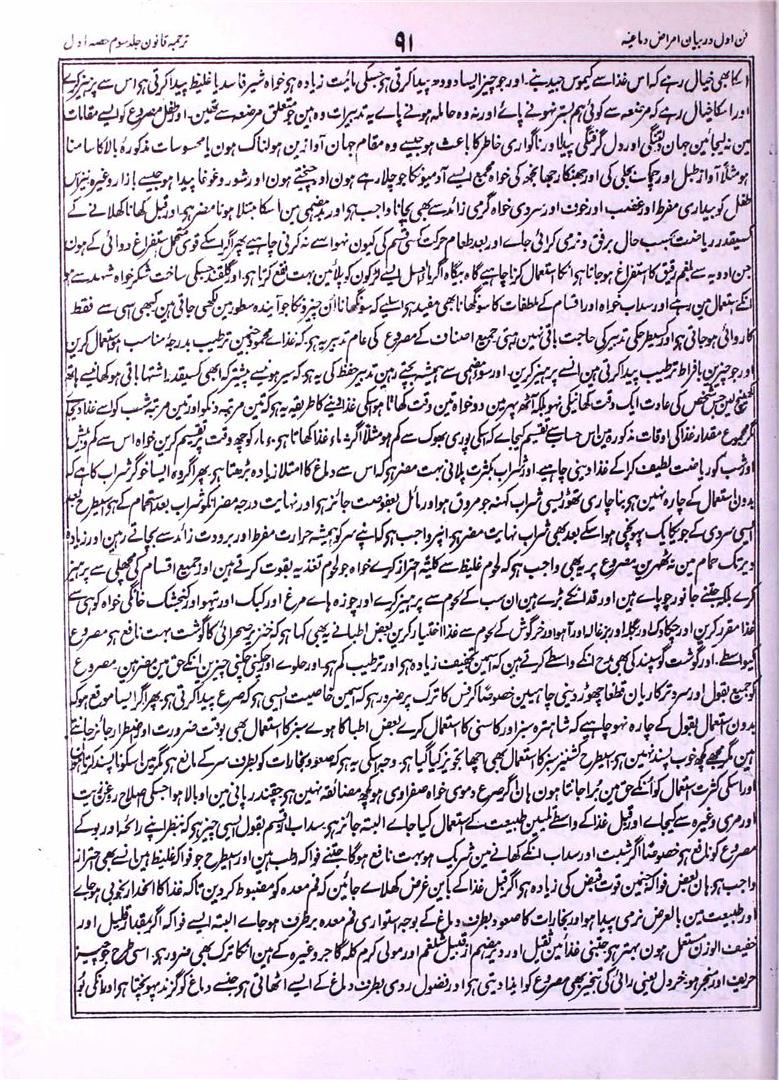 فن اول در بیان امراض دماغیہ ۹۱ ترجمہ قانون جلد سوم حصہ اول
اسکا بھی خیال رہے کہ اس غذا سے کیموس جید بنے۔ اور جو چیز ایسا دودھ پیدا کرتی ہو جسکی مائیت زیادہ ہو خواہ شیر فاسد یا غلیظ پیدا کرتی ہو اس سے پرہیز کرے
اور اسکا خیال رہے کہ مرضعہ سے کوئی ہم بستر نہونے پائے اور نہ وہ حاملہ ہونے پائے یہ تدبیرات وہ ہین جو متعلق مرضعہ سے تھین۔ اور طفل مصروع کو ایسے مقامات
مین نہ لیجائین جہان دلتنگی اور دل گرفتگی پیدا اور ناگواری خاطر کا باعث ہو جیسے وہ مقام جہان آوازین ہولناک ہون یا محسوسات مذکورۂ بالا کا سامنا
ہو مثلاً آواز طبل اور چمک بجلی کی اور جھنکار جھانجھ کی خواہ مجمع ایسے آدمیونکا جو چلا رہے ہون اور چیختے ہون اور شور و غوغا پیدا ہو جیسے بازار وغیرہ نیز اس
طفل کو بیداری مفرط اور غضب اور خوف اور سردی خواہ گرمی زائد سے بھی بچانا واجب ہو اور بدہضمی مین اسکا مبتلا ہونا مضر ہو اور قبل کھانا کھلانے کے
کسیقدر ریاضت بحسب حال برفق و نرمی کرائی جاے اور بعد طعام حرکت کسی قسم کی کیون نہو اسے نہ کرنی چاہیے پھر اگر اسکے قوی متحمل استفراغ دوائی کے ہون
جن ادویہ سے بلغم رقیق کا استفراغ ہو جاتا ہو انکا استعمال کرنا چاہیے گاہ بیگاہ اگر بادل ایسے لڑکون کو پلائین بہت نفع کرتا ہو اور گلقند جسکی ساخت شکر خواہ شہد سے ہو
انکے استعمال مین رہے اور سداب خواہ اور اقسام کے ملطفات کا سونگھانا بھی مفید ہو اسلیے کہ سونگھانا ان چیزونکا جو آیندہ سطور مین لکھی جاتی ہین کبھی اسی سے فقط
کارروائی ہو جاتی ہو اور کسیطرحکی تدبیر کی حاجت باقی نہین رہتی جمیع اصناف کے مصروع کی عام تدبیر یہ ہو کہ غذاے محمود جنین ترطیب بدرجۂ مناسب ہو استعمال کرین
اور جو چیزین بافراط ترطیب پیدا کرتی ہین انسے پرہیز کرین۔ اور سوء ہضمی سے ہمیشہ بچتے رہین تدبیر حفظ کی یہ ہو کہ سیر ہونے سے پیشتر کہ ابھی کسیقدر اشتہا باقی ہو کھانیسے ہاتھ
کھینچ لین جس شخص کی عادت ایک وقت کھانیکی نہو بلکہ آٹھ پہر مین دو خواہ تین وقت کھاتا ہو اسکی غذا دینے کا طریقہ یہ ہو کہ تین مرتبہ دنکو اور تین مرتبہ شب کو اسے غذا دیجاے
اگر مجموع مقدار غذا کی اوقات مذکورہ مین اس حساب سے تقسیم کیجاے کہ اسکی پوری بھوک سے کم ہو مثلاً اگر ۔۔ غذا کھاتا ہو ۔۔ کو چھ وقت پر تقسیم کرین خواہ اس سے کم و بیش
اور شب کو ریاضت لطیف کرا کے غذا دینی چاہیے۔ اور شراب بکثرت پلانی بہت مضر ہو کہ اس سے دماغ کا امتلا زیادہ بڑھتا ہو پھر اگر وہ ایسا خوگر شراب کا ہے کہ
بدون استعمال کے چارہ نہین ہو بنا چاری تھوڑیسی شراب کہنہ جو مروق ہو اور مائل بعفوصت جائز ہو اور نہایت درجہ مضر انکو شراب بعد استحمام کے ہو اسیطرح بعد
ایسی سردی کے جو یکایک پہونچی ہو اسکے بعد بھی شراب نہایت مضر ہو انپر واجب ہو کہ اپنے سر کو ہمیشہ حرارت مفرط اور برودت زائد سے بچاتے رہین اور زیادہ
دیر تک حمام مین نہ ٹھہرین مصروع پر یہ بھی واجب ہو کہ لحوم غلیظ سے کلیۃً احتراز کرے خواہ جو لحوم تغذیہ بقوت کرتے ہین اور جمیع اقسام کی مچھلی سے پرہیز
کرے بلکہ جتنے جانور چوپاے ہین اور قد انکے بڑے ہین ان سب کے لحوم سے پرہیز کرے اور چوزہ ہاے مرغ اور کبک اور تیہو اور کنجشک خانگی خواہ کوہی سے
غذا مقرر کرین اور چکاوک اور گلہ اور بزغالہ اور آہو اور خرگوش کے لحوم سے غذا اختیار کرین بعض اطبا نے یہ بھی کہا ہو کہ خنزیر صحرائی کا گوشت بہت نافع ہو مصروع
کیواسطے۔ اور گوشت گوسپند کی بھی مدح انکے واسطے کرتے ہین کہ اسمین تجفیف زیادہ ہو اور ترطیب کم ہو۔ اور حلوے اور چکنی چکنی چیزین انکے حق مین مضر ہین۔ مصروع
کو جمیع بقول اور سرد ترکاریان قطعاً چھوڑ دینی چاہیین خصوصاً کرفس کا ترک پر ضرور ہو کہ اسمین خاصیت ایسی ہو کہ صرع پیدا کرتی ہو پھر اگر ایسا موقع ہو کہ
بدون استعمال بقول کے چارہ نہو چاہیے کہ شاہترہ سبز اور کاسنی کا استعمال کرے بعض اطبا کاہوے سبز کا استعمال بھی بوقت ضرورت اور اضطرار جائز جانتے
ہین مگر مجھے کچھ خوب پسند نہین ہو اسیطرح کشنیز سبز کا استعمال بھی اچھا تجویز کیا گیا ہو۔ وجہ اسکی یہ ہو کہ صعود بخارات کو بطرف سر کے مانع ہو مگر مین اسکو ناپسند کرتا ہون
اور اسکی کثرت استعمال کو انکے حق مین برا جانتا ہون ہان اگر صرع دموی خواہ صفراوی ہو کچھ مضائقہ نہین ہو چقندر پانی مین اوبالا ہوا جسکی اصلاح روغن زیت
اور مری وغیرہ سے کیجاے اور قبل غذا کے واسطے تلیین طبیعت کے استعمال کیا جاے البتہ جائز ہو۔ سداب از قسم بقول ایسی چیز ہو کہ بنظر اپنے رائحہ اور بو کے
مصروع کو نافع ہو خصوصاً اگر شبت اور سداب انکے کھانے مین شریک ہو بہت نافع ہوگا جتنے فواکہ رطب ہین اور اسیطرح جو فواکہ غلیظ ہین انسے بھی احتراز
واجب ہو ہان بعض فواکہ جنمین قوت قبض کی زیادہ ہو اگر قبل غذا کے باین غرض کھلائے جائین کہ فم معدہ کو مضبوط کر دین تاکہ غذا کا انحدار بخوبی ہو جاے
اور طبیعت مین بالعرض نرمی پیدا ہو اور بخارات کا صعود بطرف دماغ کے بوجہ استواری فم معدہ برطرف ہو جاے البتہ ایسے فواکہ اگر بمقدار قلیل اور
خفیف الوزن مستعمل ہون بہتر ہو جتنی غذائین ثقیل اور دیر ہضم از قبیل شلغم اور مولی کرم کلہ گاجر وغیرہ کے ہین انکا ترک بھی ضرور ہو۔ اسی طرح جو چیز
حریف اور مبخر ہو خردل یعنی رائی کی تبخیر بھی مصروع کو ایذا دیتی ہو اور فضول ردی بطرف دماغ کے ایسے اٹھاتی ہو جنسے دماغ کو گزند پہونچتا ہو اور انکی بو